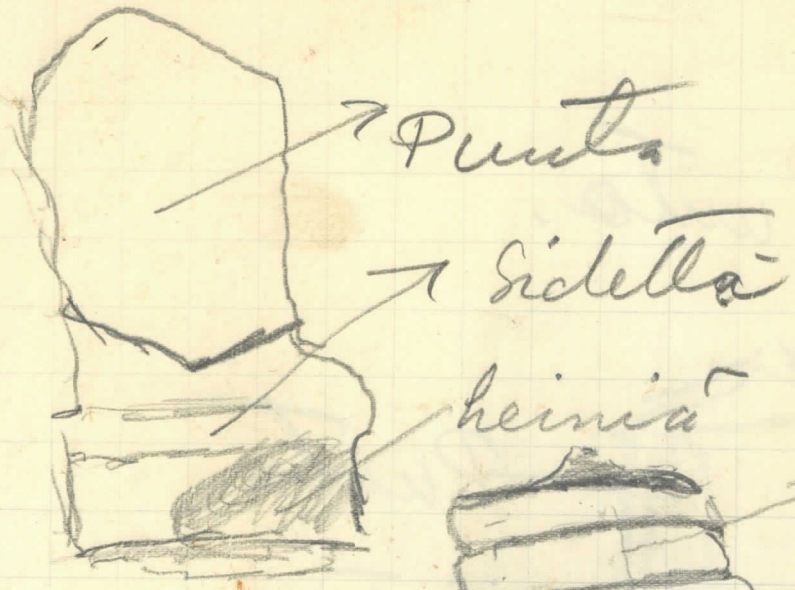 Puuta
Sidettä
heiniä